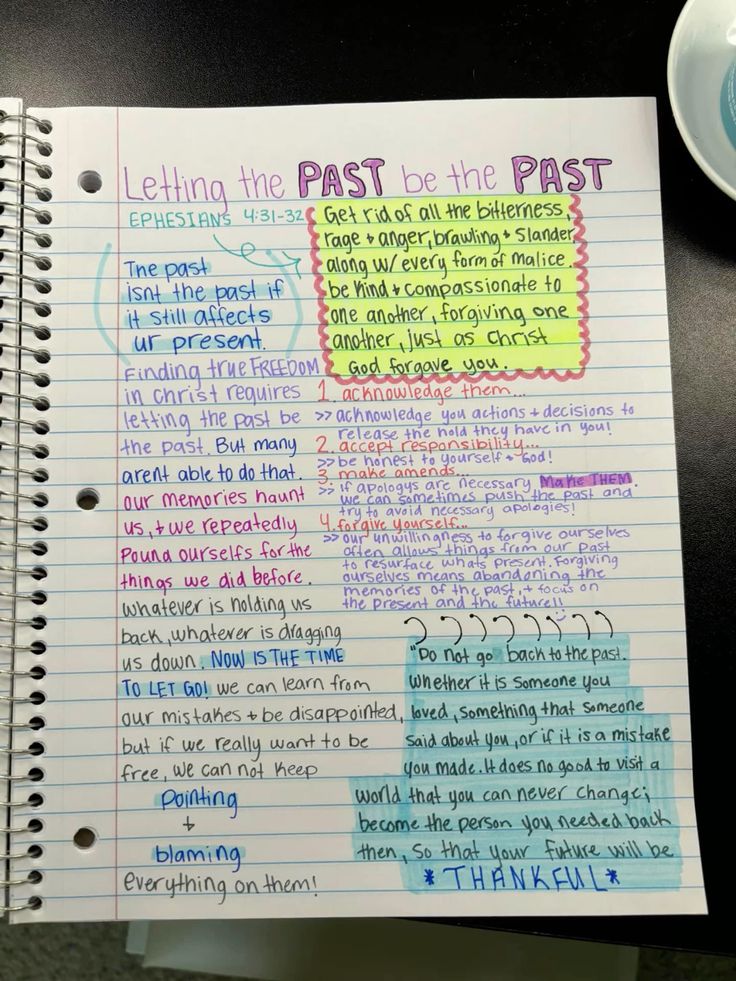 Letting the PAST be the PAST
EPHESIANS 4:31-32
Get rid of all the bitterness,
rage + anger, brawling + slander,
along w/ every form of malice.
be kind + compassionate to
one another, forgiving one
another, just as Christ
God forgave you.
The past
isnt the past if
it still affects
ur present.
Finding true FREEDOM
in Christ requires
letting the past be
the past. But many
arent able to do that.
our memories haunt
us, + we repeatedly
pound ourselfs for the
things we did before.
whatever is holding us
back, whatever is dragging
us down. NOW IS THE TIME
TO LET GO! we can learn from
our mistakes + be disappointed,
but if we really want to be
free, we can not keep
pointing
+
blaming
everything on them!
1. acknowledge them...
>> acknowledge you actions + decisions to
release the hold they have in you!
2. accept responsibility...
>> be honest to yourself + God!
3. make amends...
>> if apologys are necessary MAKE THEM.
we can sometimes push the past and
try to avoid necessary apologies!
4. forgive yourself...
>> our unwillingness to forgive ourselves
often allows things from our past
to resurface whats present. Forgiving
ourselves means abandoning the
memories of the past, + focus on
the present and the future!!
"Do not go back to the past.
whether it is someone you
loved, something that someone
said about you, or if it is a mistake
you made. It does no good to visit a
world that you can never change;
become the person you needed back
then, so that your future will be
*THANKFUL*